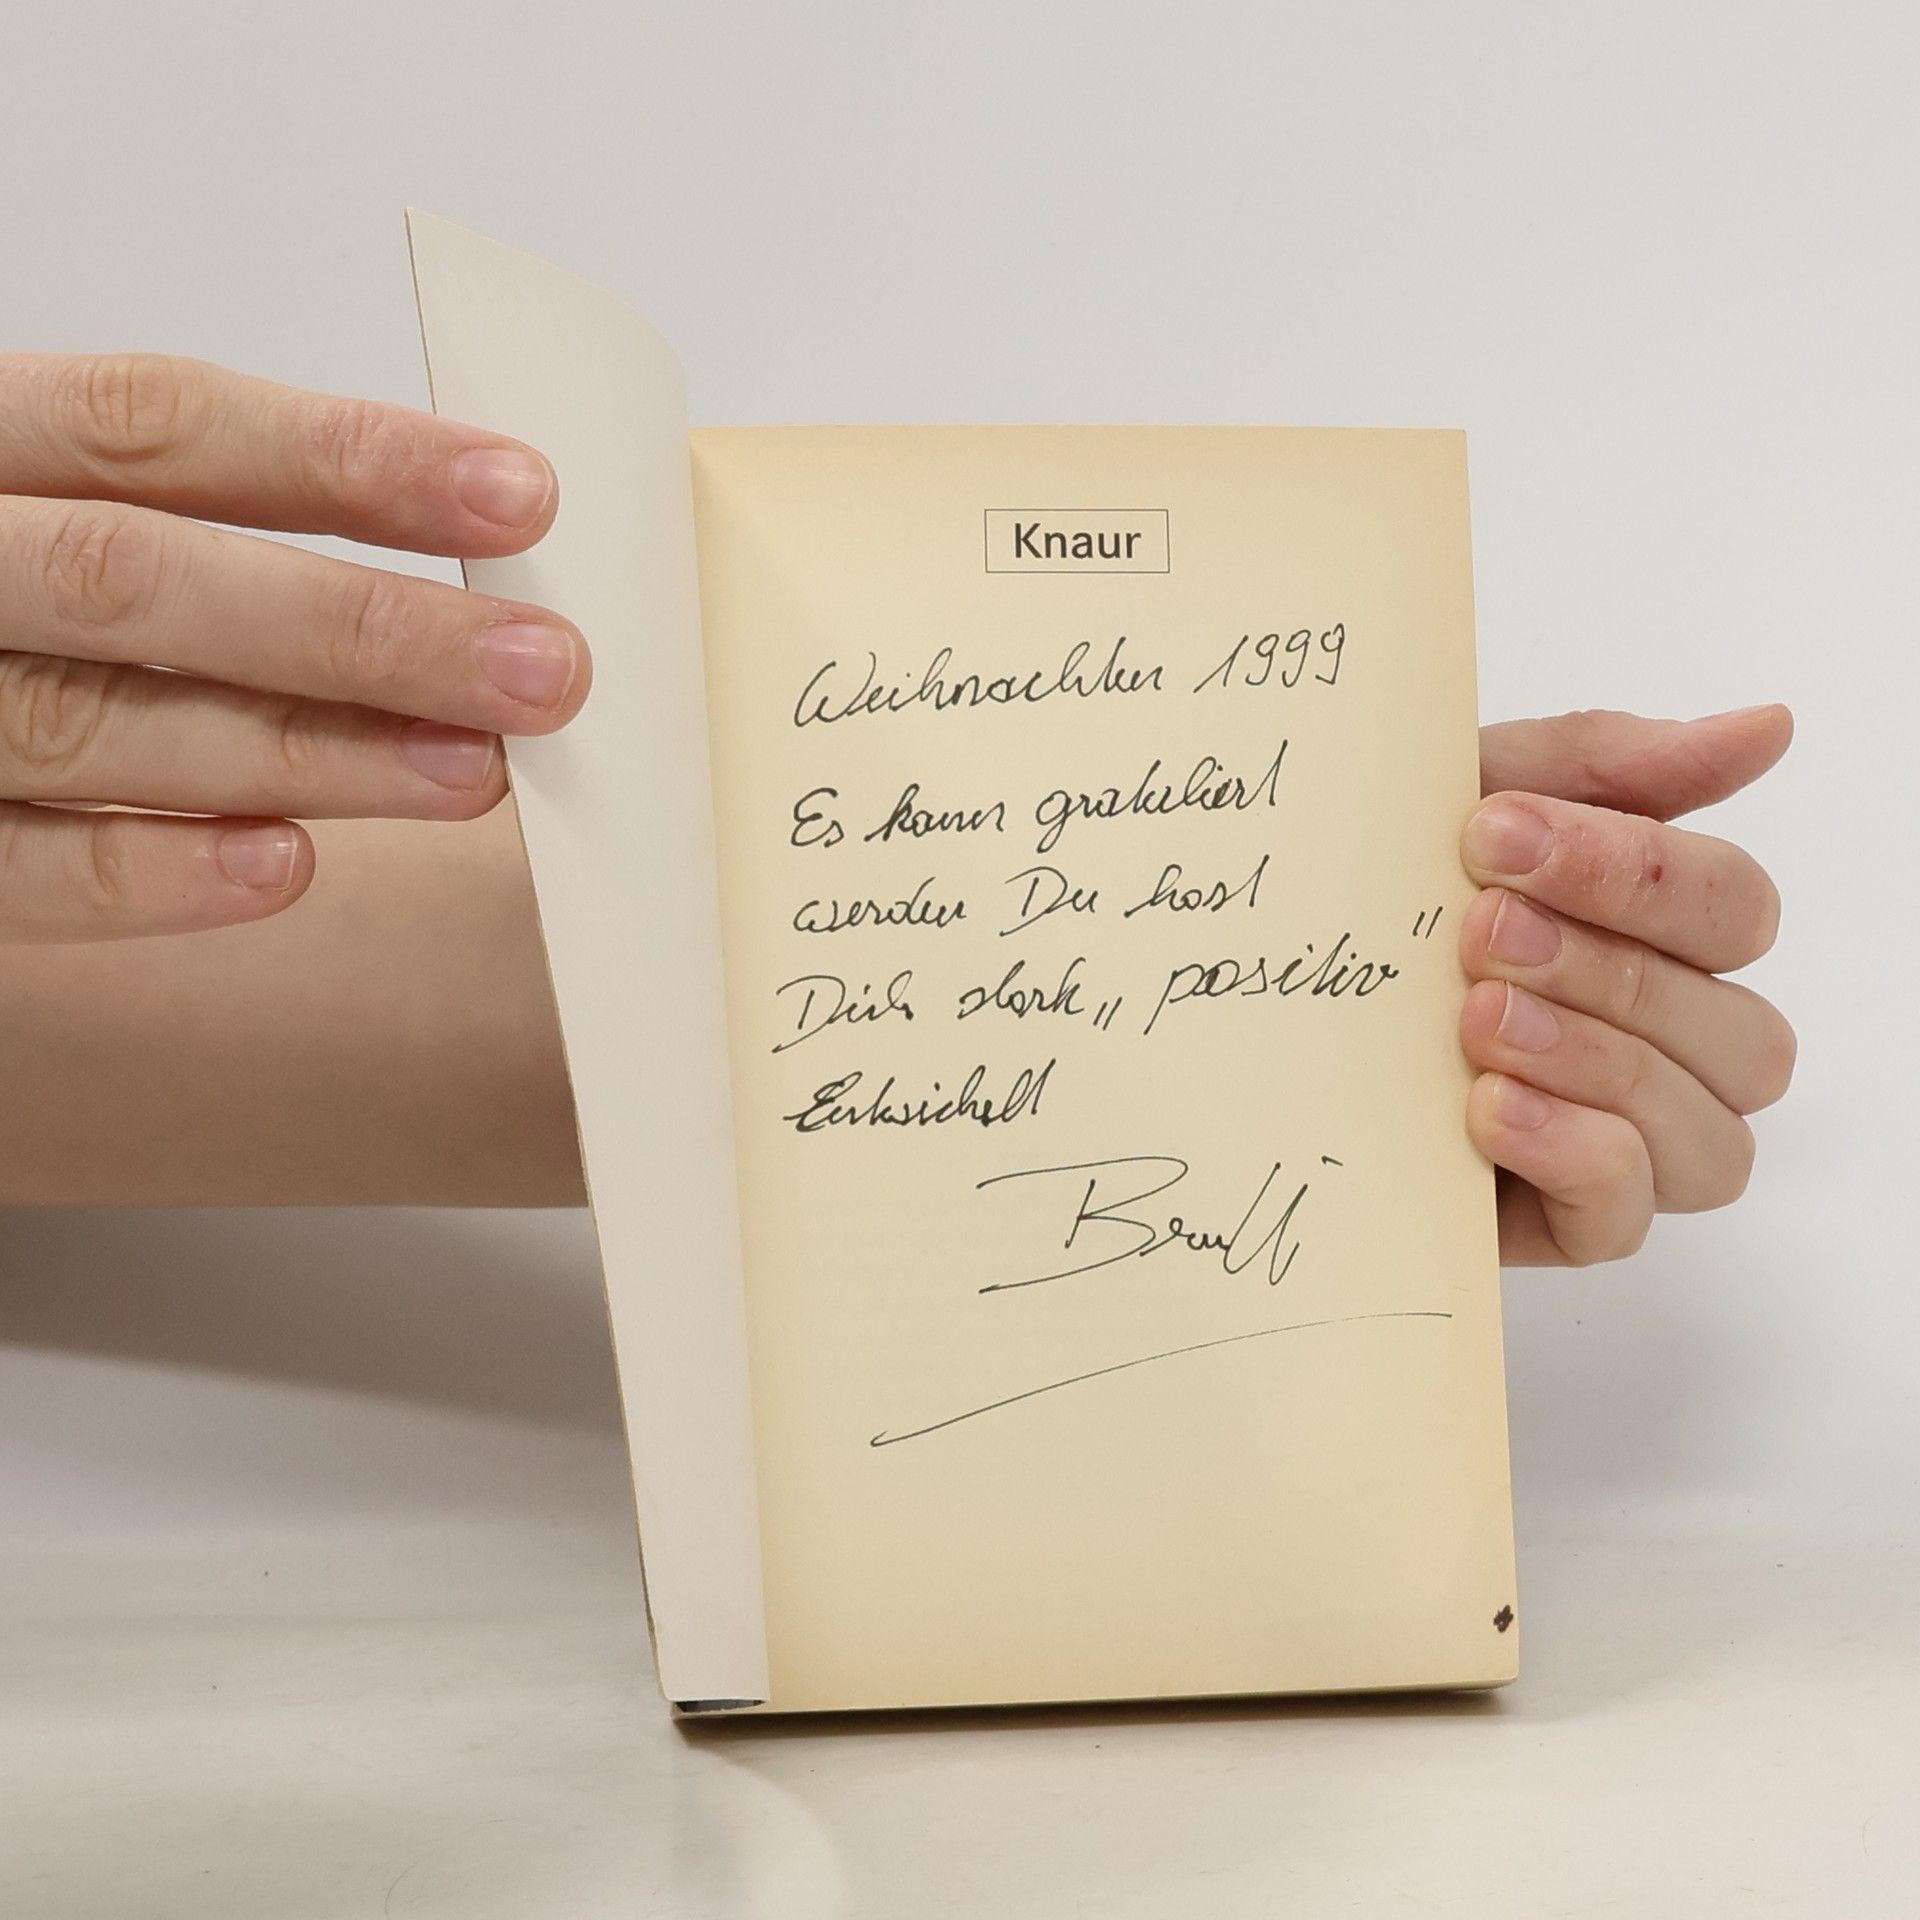 Knaur
Weihnachten 1999
Es kann gratuliert
werden Du hast
Dich stark „positiv"
Entwickelt